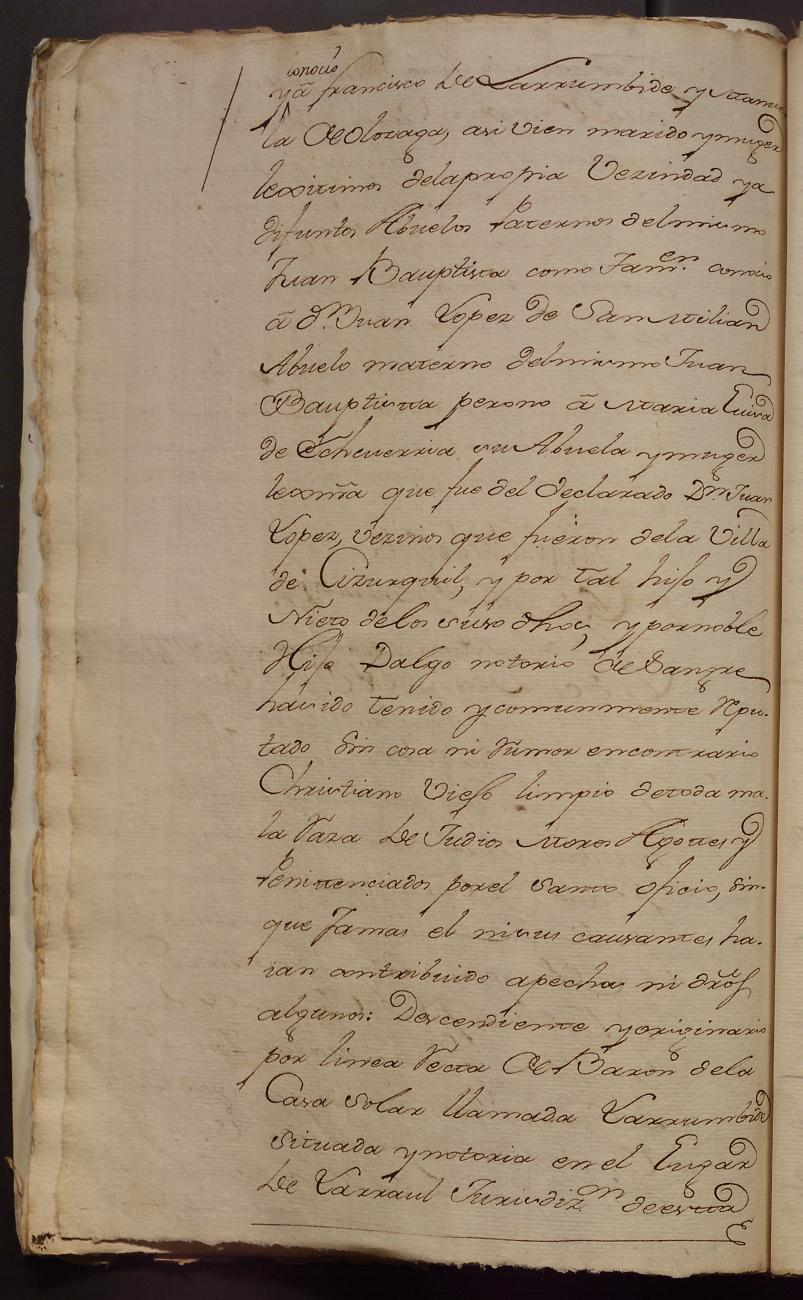 conocio
y â francisco de Larrumbide y Manue-
la de olozaga, asi vien marido y muger
lexitimos de la propia Vezindad ya
difuntos Abuelos Paternos del mismo
Juan Bauptista como tamvⁿ. conocio
â Dⁿ. Juan Lopez de San Milian
Abuelo materno del mismo Juan
Bauptista pero no â Maria Luisa
de Echeverria su Abuela y muger
lexma que fue del declarado Dⁿ. Juan
Lopez, vezinos que fueron de la Villa
de Cizurquil, y por tal hijo y
Nieto de los suso dhos, y por noble
Hijo Dalgo notorio de Sangre
havido tenido y comunmente Repu-
tado Sin cosa ni Rumor en contrario
Christiano Viejo limpio de toda ma-
la Raza de Judios Moros Agotes y
Penitenciados por el Santo oficio, Sin-
que Jamas el ni sus causantes ha-
ian contribuido a pechas ni drôs
algunos: Descendiente y originario
por linea Recta de Baron de la
Casa Solar llamada Larrumbide
Situada y notoria en el Lugar
de Larraul Jurisdizⁿ. de esta